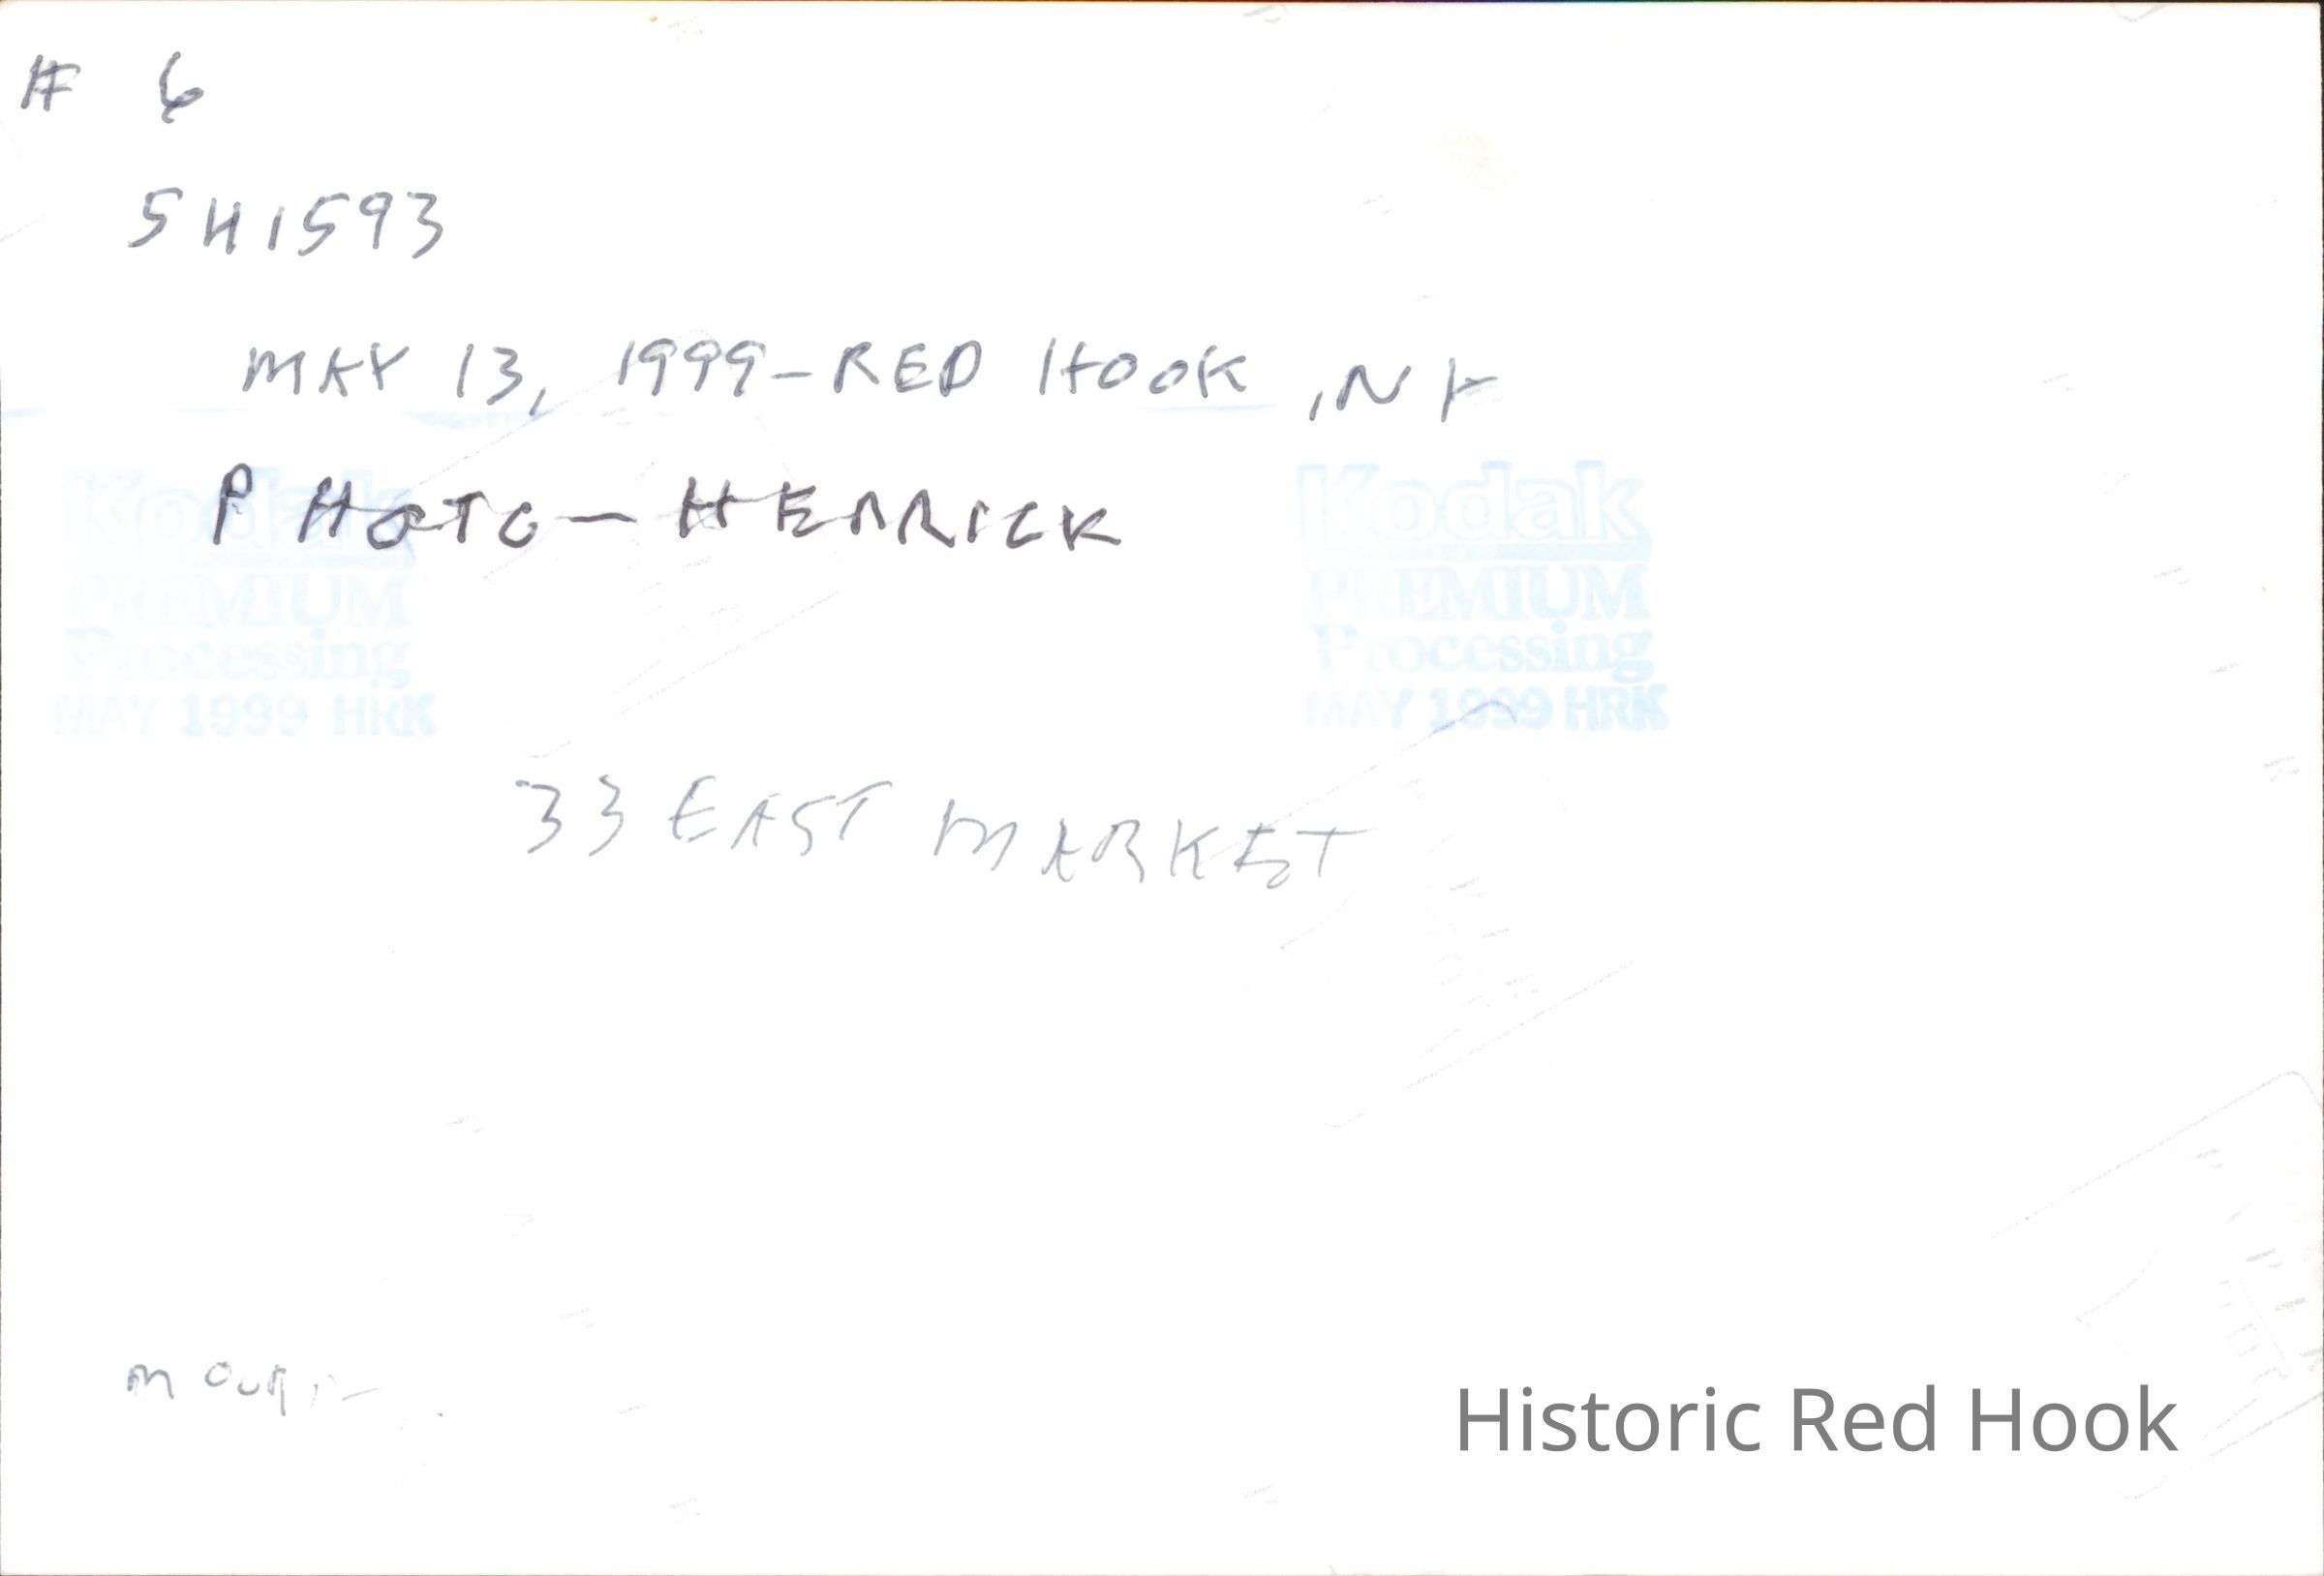 # 6
5H1593
MAY 13, 1999-RED HOOK, NY
PHOTO-HERRICK
Kodak
PREMIUM
Processing
MAY 1999 HRK
Kodak
PREMIUM
Processing
MAY 1999 HRK
33 EAST MARKET
Historic Red Hook